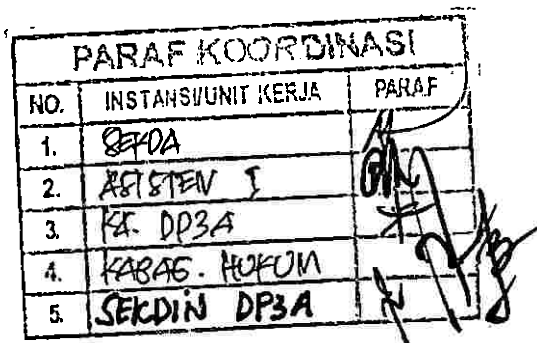 PARAF KOORDINASI
NO. INSTANSI/UNIT KERJA PARAF
1. SEKDA
2. ASISTEN I
3. KA. DP3A
4. KABAG. HUKUM
5. SEKDIN DP3A